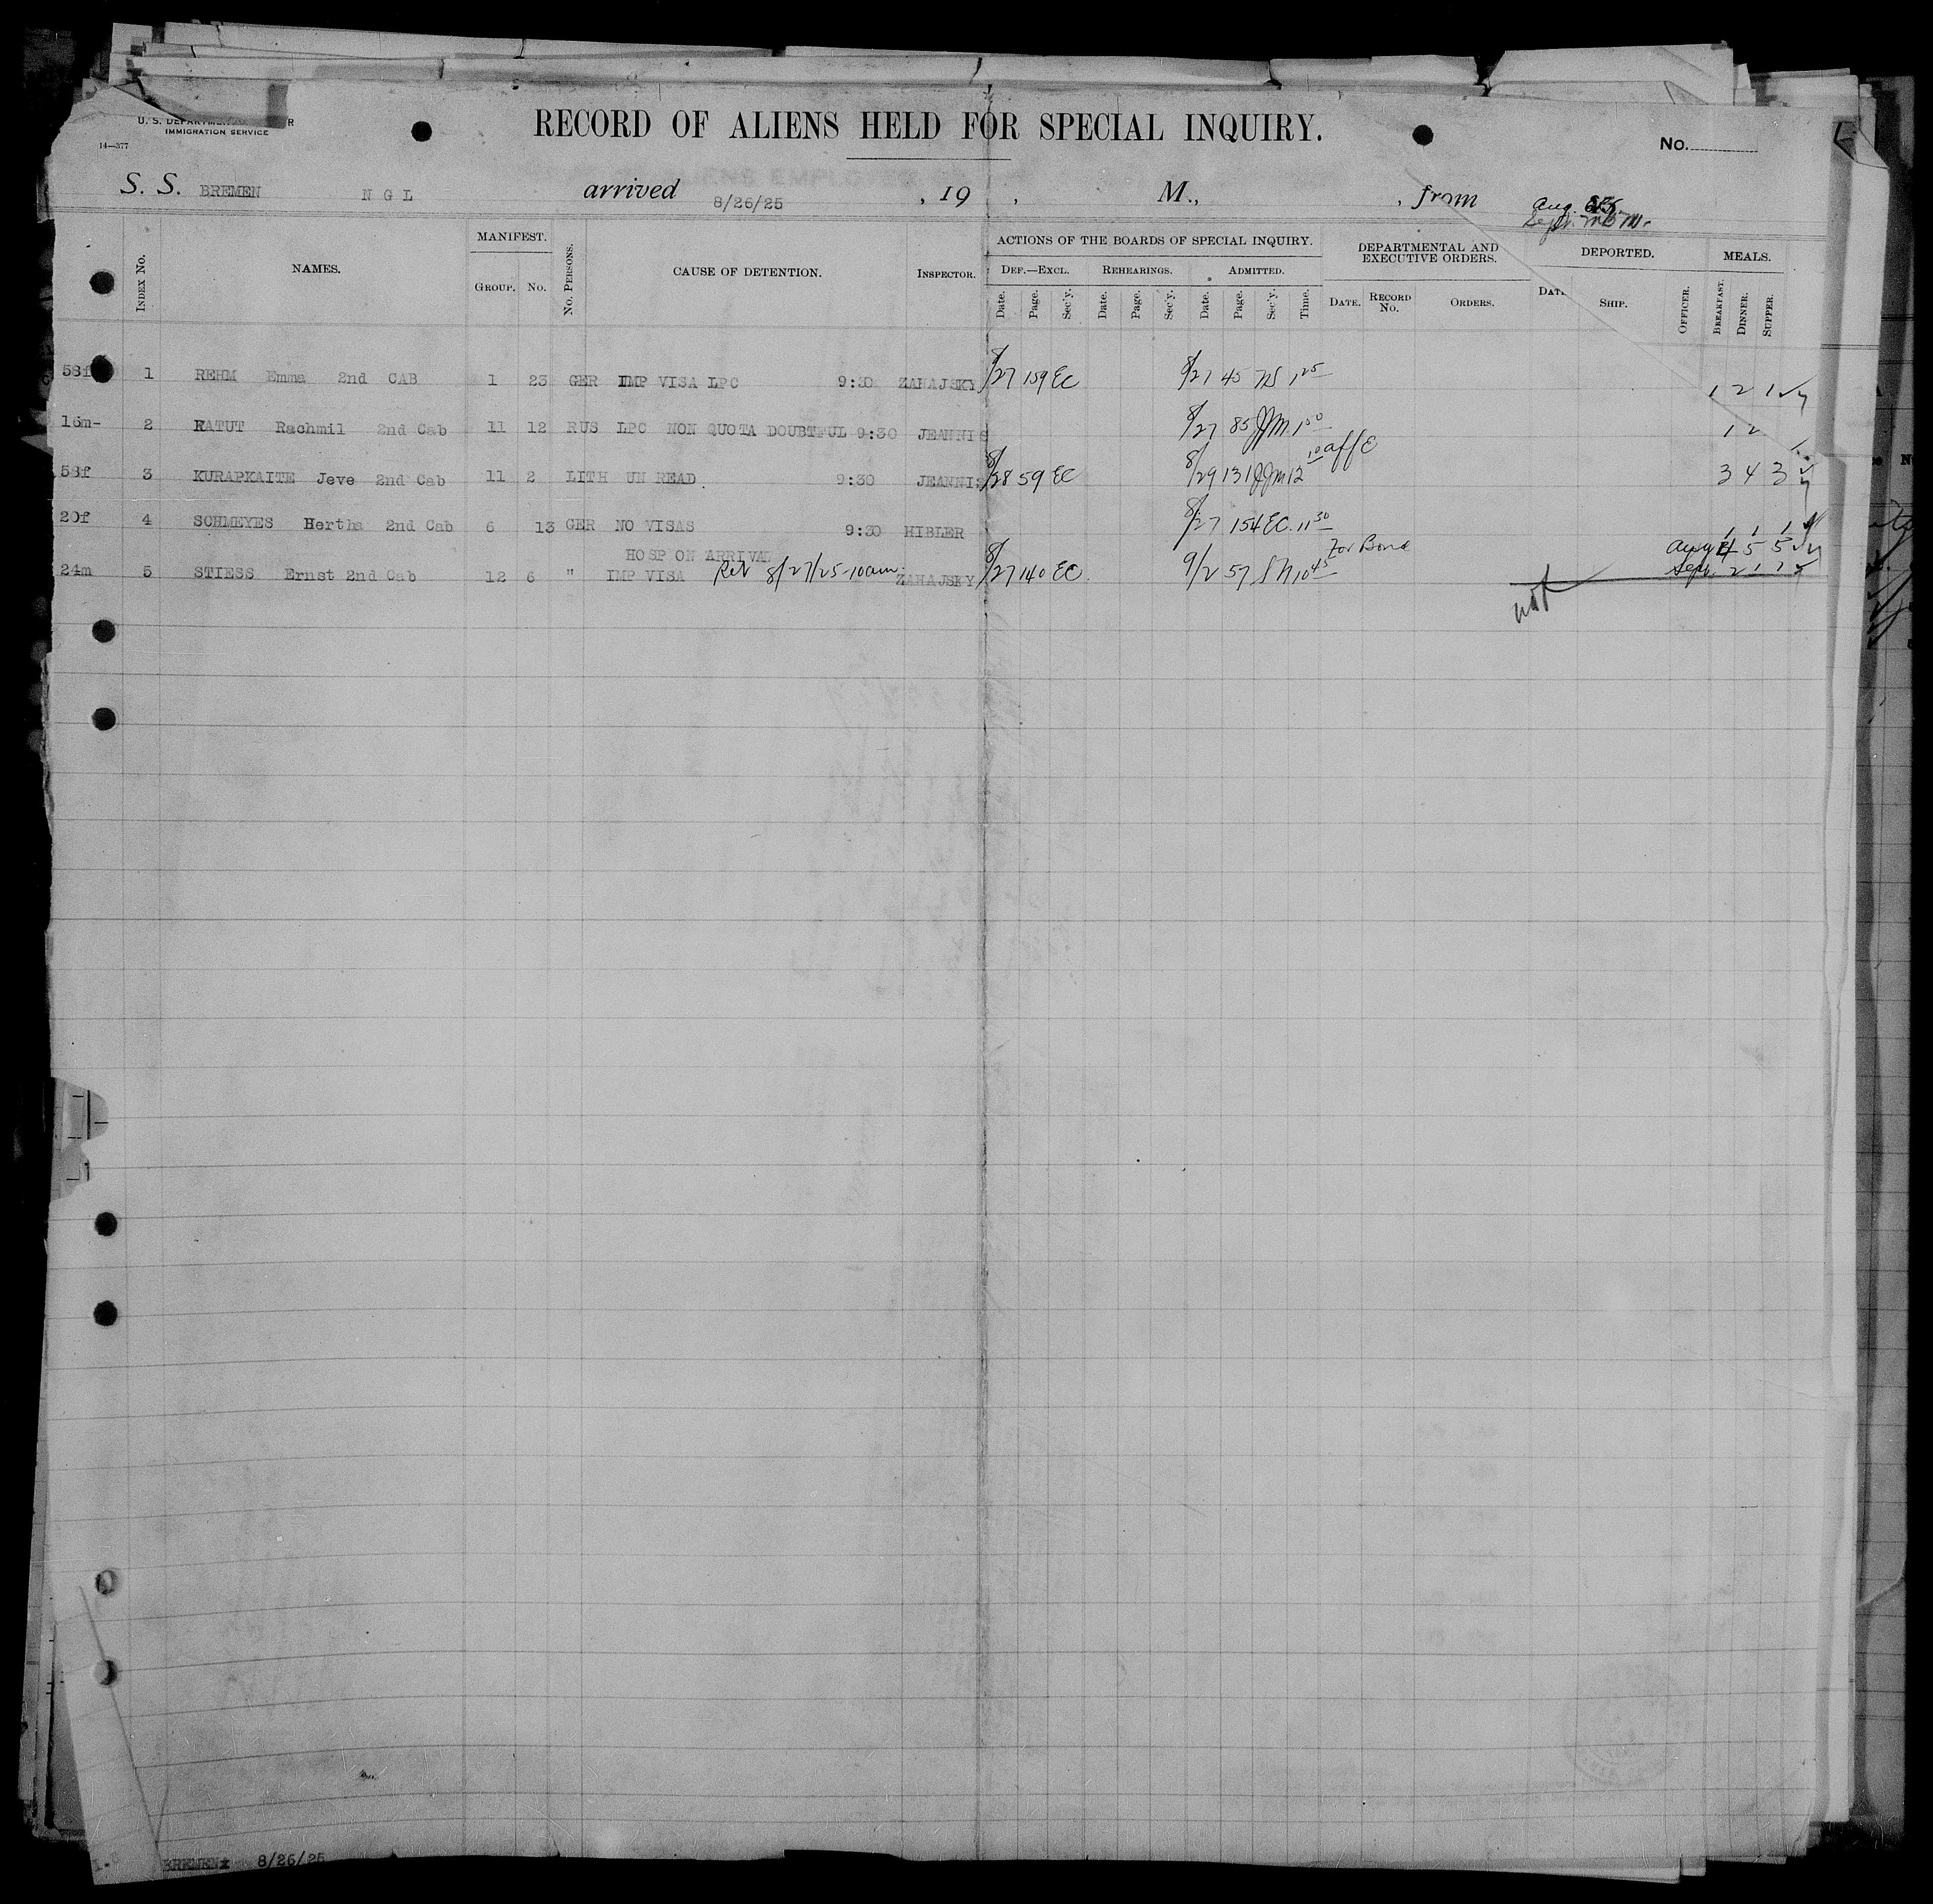 U. S. DEPARTMENT
IMMIGRATION SERVICE
14—377
RECORD OF ALIENS HELD FOR SPECIAL INQUIRY.
No.
S. S. BREMEN N G L arrived 8/26/25 , 19 , M., , from
Aug.
Sept.
INDEX No. NAMES. MANIFEST. GROUP. No. No. PERSONS. CAUSE OF DETENTION. INSPECTOR. ACTIONS OF THE BOARDS OF SPECIAL INQUIRY. DEPARTMENTAL AND EXECUTIVE ORDERS. DEPORTED. MEALS.
DEF.—EXCL. REHEARINGS. ADMITTED.
Date. Page. Sec'y. Date. Page. Sec'y. Date. Page. Sec'y. Time. DATE. RECORD No. ORDERS. DATE SHIP. OFFICER. BREAKFAST. DINNER. SUPPER.
58f 1 REHM Emma 2nd CAB 1 23 GER IMP VISA LPC 9:30 ZAHAJSKY 8/27 159 EC 8/27 45 1 25 1 2 1
16m- 2 RATUT Rachmil 2nd Cab 11 12 RUS LPC NON QUOTA DOUBTFUL 9:30 JEANNIS 8/27 85 JJM 1 50 1 2
58f 3 KURAPKAITE Jeve 2nd Cab 11 2 LITH UN READ 9:30 JEANNIS 8/28 59 EC 8/29 131 JJM 12 10 aff C 3 4 3
20f 4 SCHMEYES Hertha 2nd Cab 6 13 GER NO VISAS 9:30 HIBLER 8/27 154 EC 11 30 1 1 1
HOSP ON ARRIVAL For Bond
24m 5 STIESS Ernst 2nd Cab 12 6 " IMP VISA Rel 8/27/25-10am ZAHAJSKY 8/27 140 EC 9/2 57 S N 10 45 Aug 4 5 5
Sept. 2 1 1
not
BREMENx 8/26/25